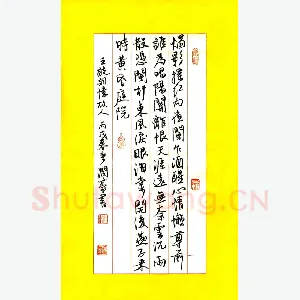 燭影搖紅向夜闌乍酒醒心情懶尊前
誰為唱陽關離恨天涯遠無奈雲沉雨
散憑闌杆東風淚眼海棠開後燕子來
時黃昏庭院
王詵詞憶故人丙戌
Shufawang.CN